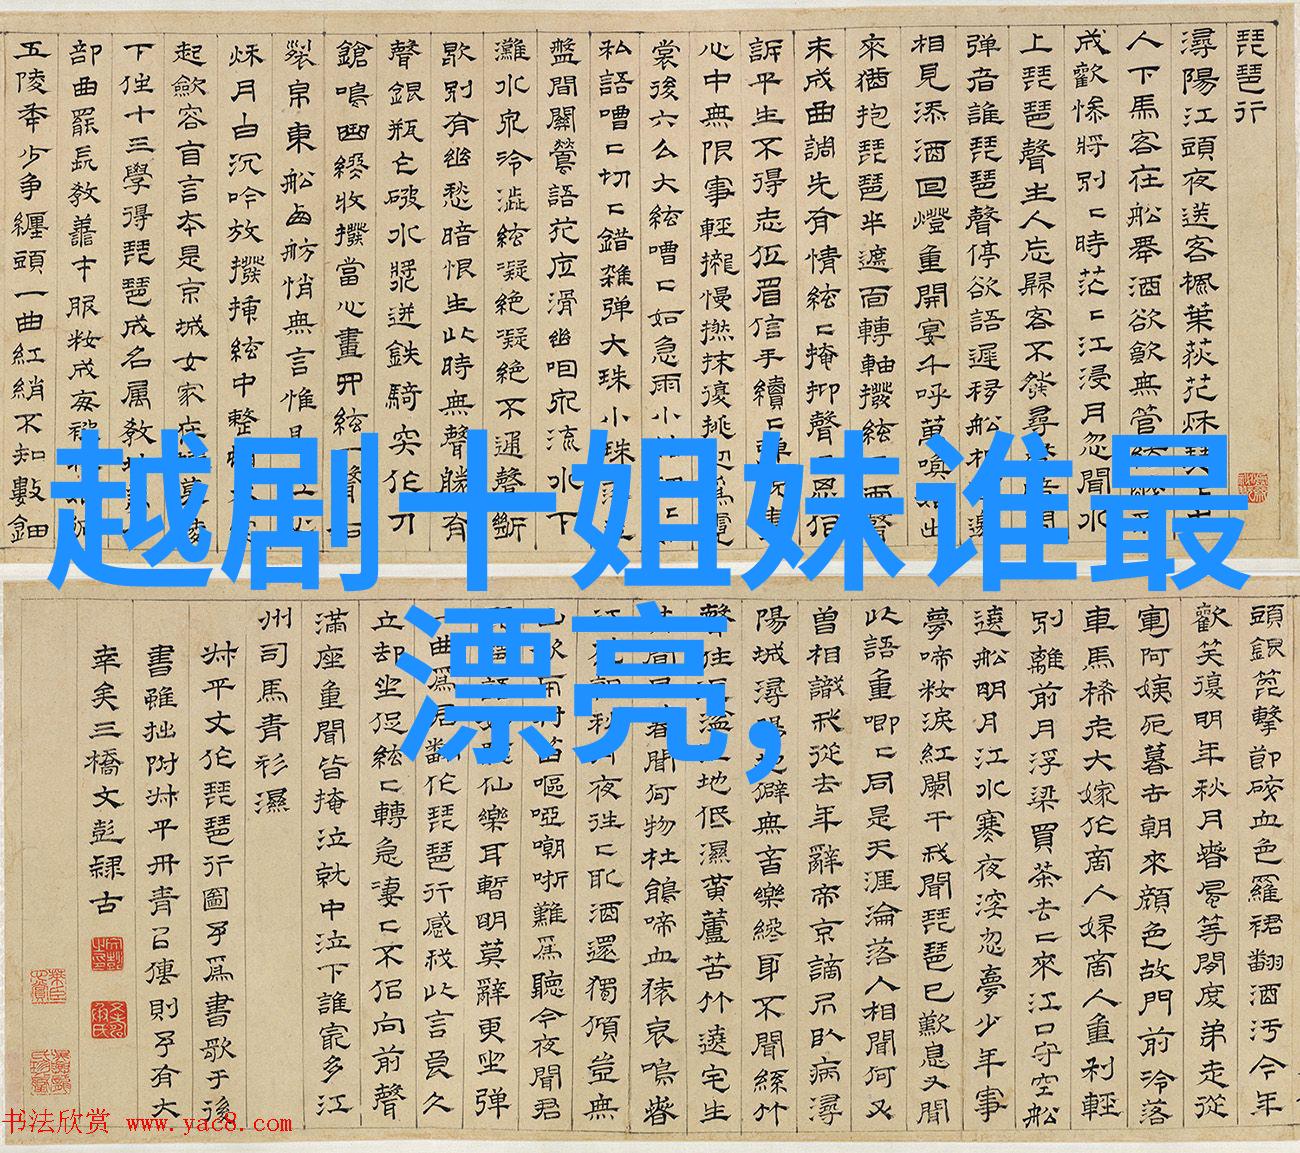 琵琶行
潯陽江頭夜送客楓葉荻花秌瑟
人下馬客在船舉酒欲飲無管
成歡慘將別〻時茫〻江浸月忽聞水
上琵琶聲主人忘歸客不發尋聲暗問
彈者誰琵琶聲停欲語遲移船相邀
相見添酒回燈重開宴千呼萬喚始出
來猶抱琵琶半遮面轉軸撥絃三兩聲
未成曲調先有情絃〻掩抑聲〻思似
訴平生不得志低眉信手續〻彈
心中無限事輕攏慢撚抹復挑初爲霓
裳後六么大絃嘈〻如急雨小絃切〻
私語嘈〻切〻錯雜彈大珠小珠落玉
盤間關鶯語花底滑幽咽泉流水下
灘水泉冷澁絃凝絶凝絶不通聲漸
歇別有幽愁暗恨生此時無聲勝有
聲銀瓶乍破水漿迸鉄騎突作刀
鎗鳴曲終收撥當心畫四絃一聲如
裂帛東船西舫悄無言惟見江心
秌月白沉吟放撥揷絃中整頓衣
起斂容自言本是京城女家在蟇陵
下住十三學得琵琶成名属教坊
部曲罷長教善才服粧成每被
五陵年少争纏頭一曲紅綃不知數鈿
越剧十姐妹谁最
漂亮,
頭銀篦擊節破血色羅裙翻酒汚今年
歡笑復明年秋月春風等閒度弟走從
軍阿姨死暮去朝來顔色故門前冷落
車馬稀老大嫁作商人婦商人重利輕
別離前月浮梁買茶去〻來江口守空船
遶船明月江水寒夜深忽夢少年事
夢啼粧淚紅闌干我聞琵琶已歎息又聞
此語重唧〻同是天涯淪落人相聞何必
曾相識我從去年辭帝京謫居臥病潯
陽城潯陽地僻無音樂終不聞絲竹
聲住近湓江地低濕黄蘆苦竹遶宅生
其間旦暮聞何物杜鵑啼血猿哀鳴春
江花朝秋月夜往〻取酒還獨傾豈無
山歌與村笛嘔啞嘲哳難爲聽今夜聞君
琵琶語如聽仙樂耳暫明莫辭更坐彈
一曲爲君翻作琵琶行感我此言良久
立却坐促絃〻轉急凄〻不似向前聲
滿座重聞皆掩泣就中泣下誰最多江
州司馬青衫濕
叔平丈作琵琶行圖予爲書歌于後
書雖拙附叔平丹青以傳則予有大
幸矣三橋文彭隸古
书法欣赏 www.yac8.com